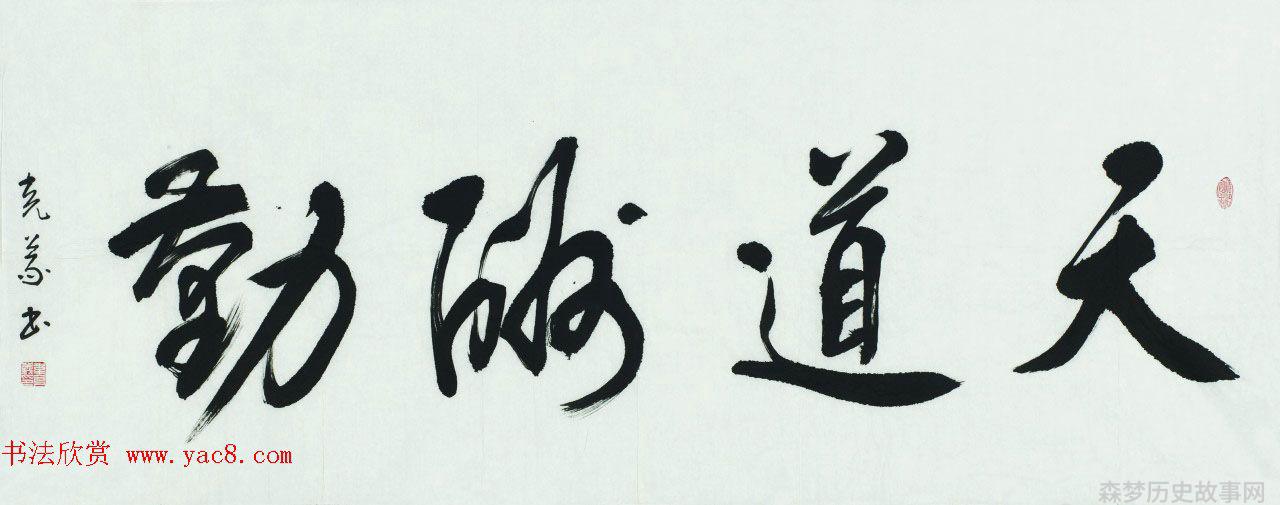 天道酬勤
克義书
书法欣赏 www.yac8.com
森梦历史故事网